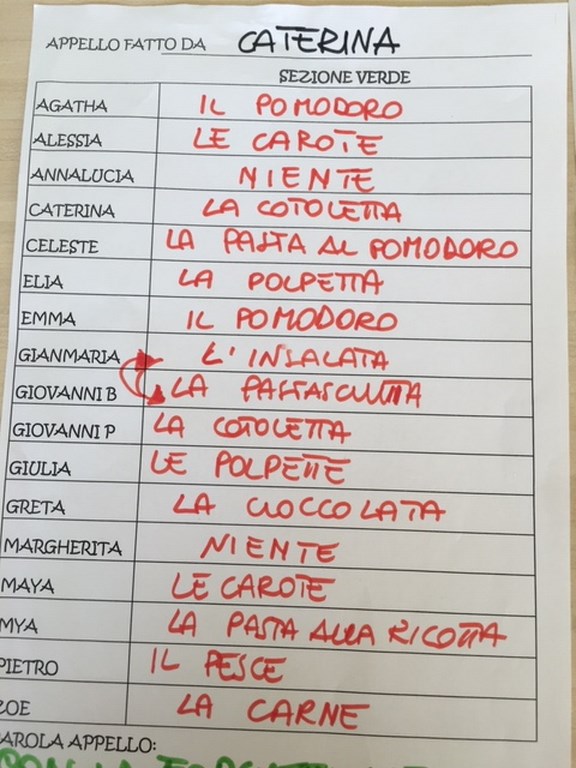 APPELLO FATTO DA CATERINA
SEZIONE VERDE
AGATHA IL POMODORO
ALESSIA LE CAROTE
ANNALUCIA NIENTE
CATERINA LA COTOLETTA
CELESTE LA PASTA AL POMODORO
ELIA LA POLPETTA
EMMA IL POMODORO
GIANMARIA L'INSALATA
GIOVANNI B LA PASTASCIUTTA
GIOVANNI P LA COTOLETTA
GIULIA LE POLPETTE
GRETA LA CIOCCOLATA
MARGHERITA NIENTE
MAYA LE CAROTE
MYA LA PASTA ALLA RICOTTA
PIETRO IL PESCE
ZOE LA CARNE
PAROLA APPELLO: